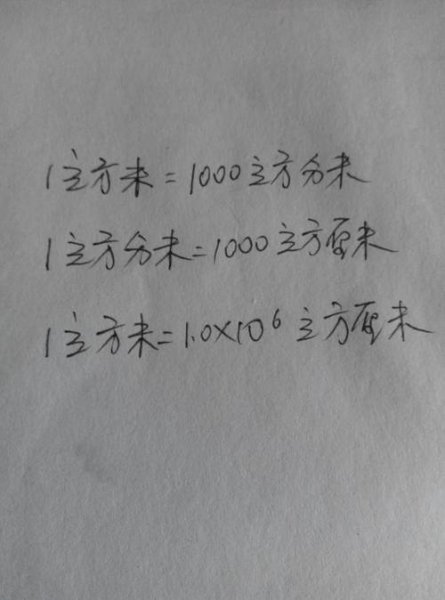 1立方米=1000立方分米
1立方分米=1000立方厘米
1立方米=1.0×10⁶立方厘米